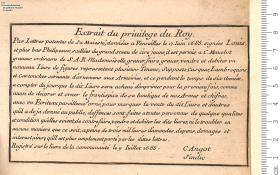 Extrait du privilege du Roy.
Par Lettres patentes de Sa Majesté, données a Versailles le 15 Juin 1685. signées Louis,
et plus bas Phelipeaux, scellées du grand sceau de cire jaune, il est permis a C. Mavelot
graveur ordinaire de S.A.R. Mademoiselle, graver, faire graver, vendre et debiter un
nouveau Livre de figures representant plusieurs Tenans, Supports, Casques, Lambrequins
et Cartouches servants d'ornemens aux Armoiries, et ce pendant le temps de dix Années
a compter du jour que le dit Livre sera achevé d'imprimer pour la premiere fois, comme
aussi de decorer et orner le frontispice de sa boutique de nos Armes et chifres,
avec un Ecriteau pour marquer la vente du dit Livre et d'autres
qu'il a deja donné au public, deffenses sont faites a toutes personnes de quelque qualité et
condition qu'elles soient de contrefaire, vendre ni debiter le dit livre et le troubler en
aucune maniere que ce soit, a peine de trois mil livres d'amendes, depens, domages et
interests, ainsi qu'il est plus amplement porté par les dites lettres.
Registré sur le livre de la communauté le 9 Juillet 1685. C. Angot
Sindic